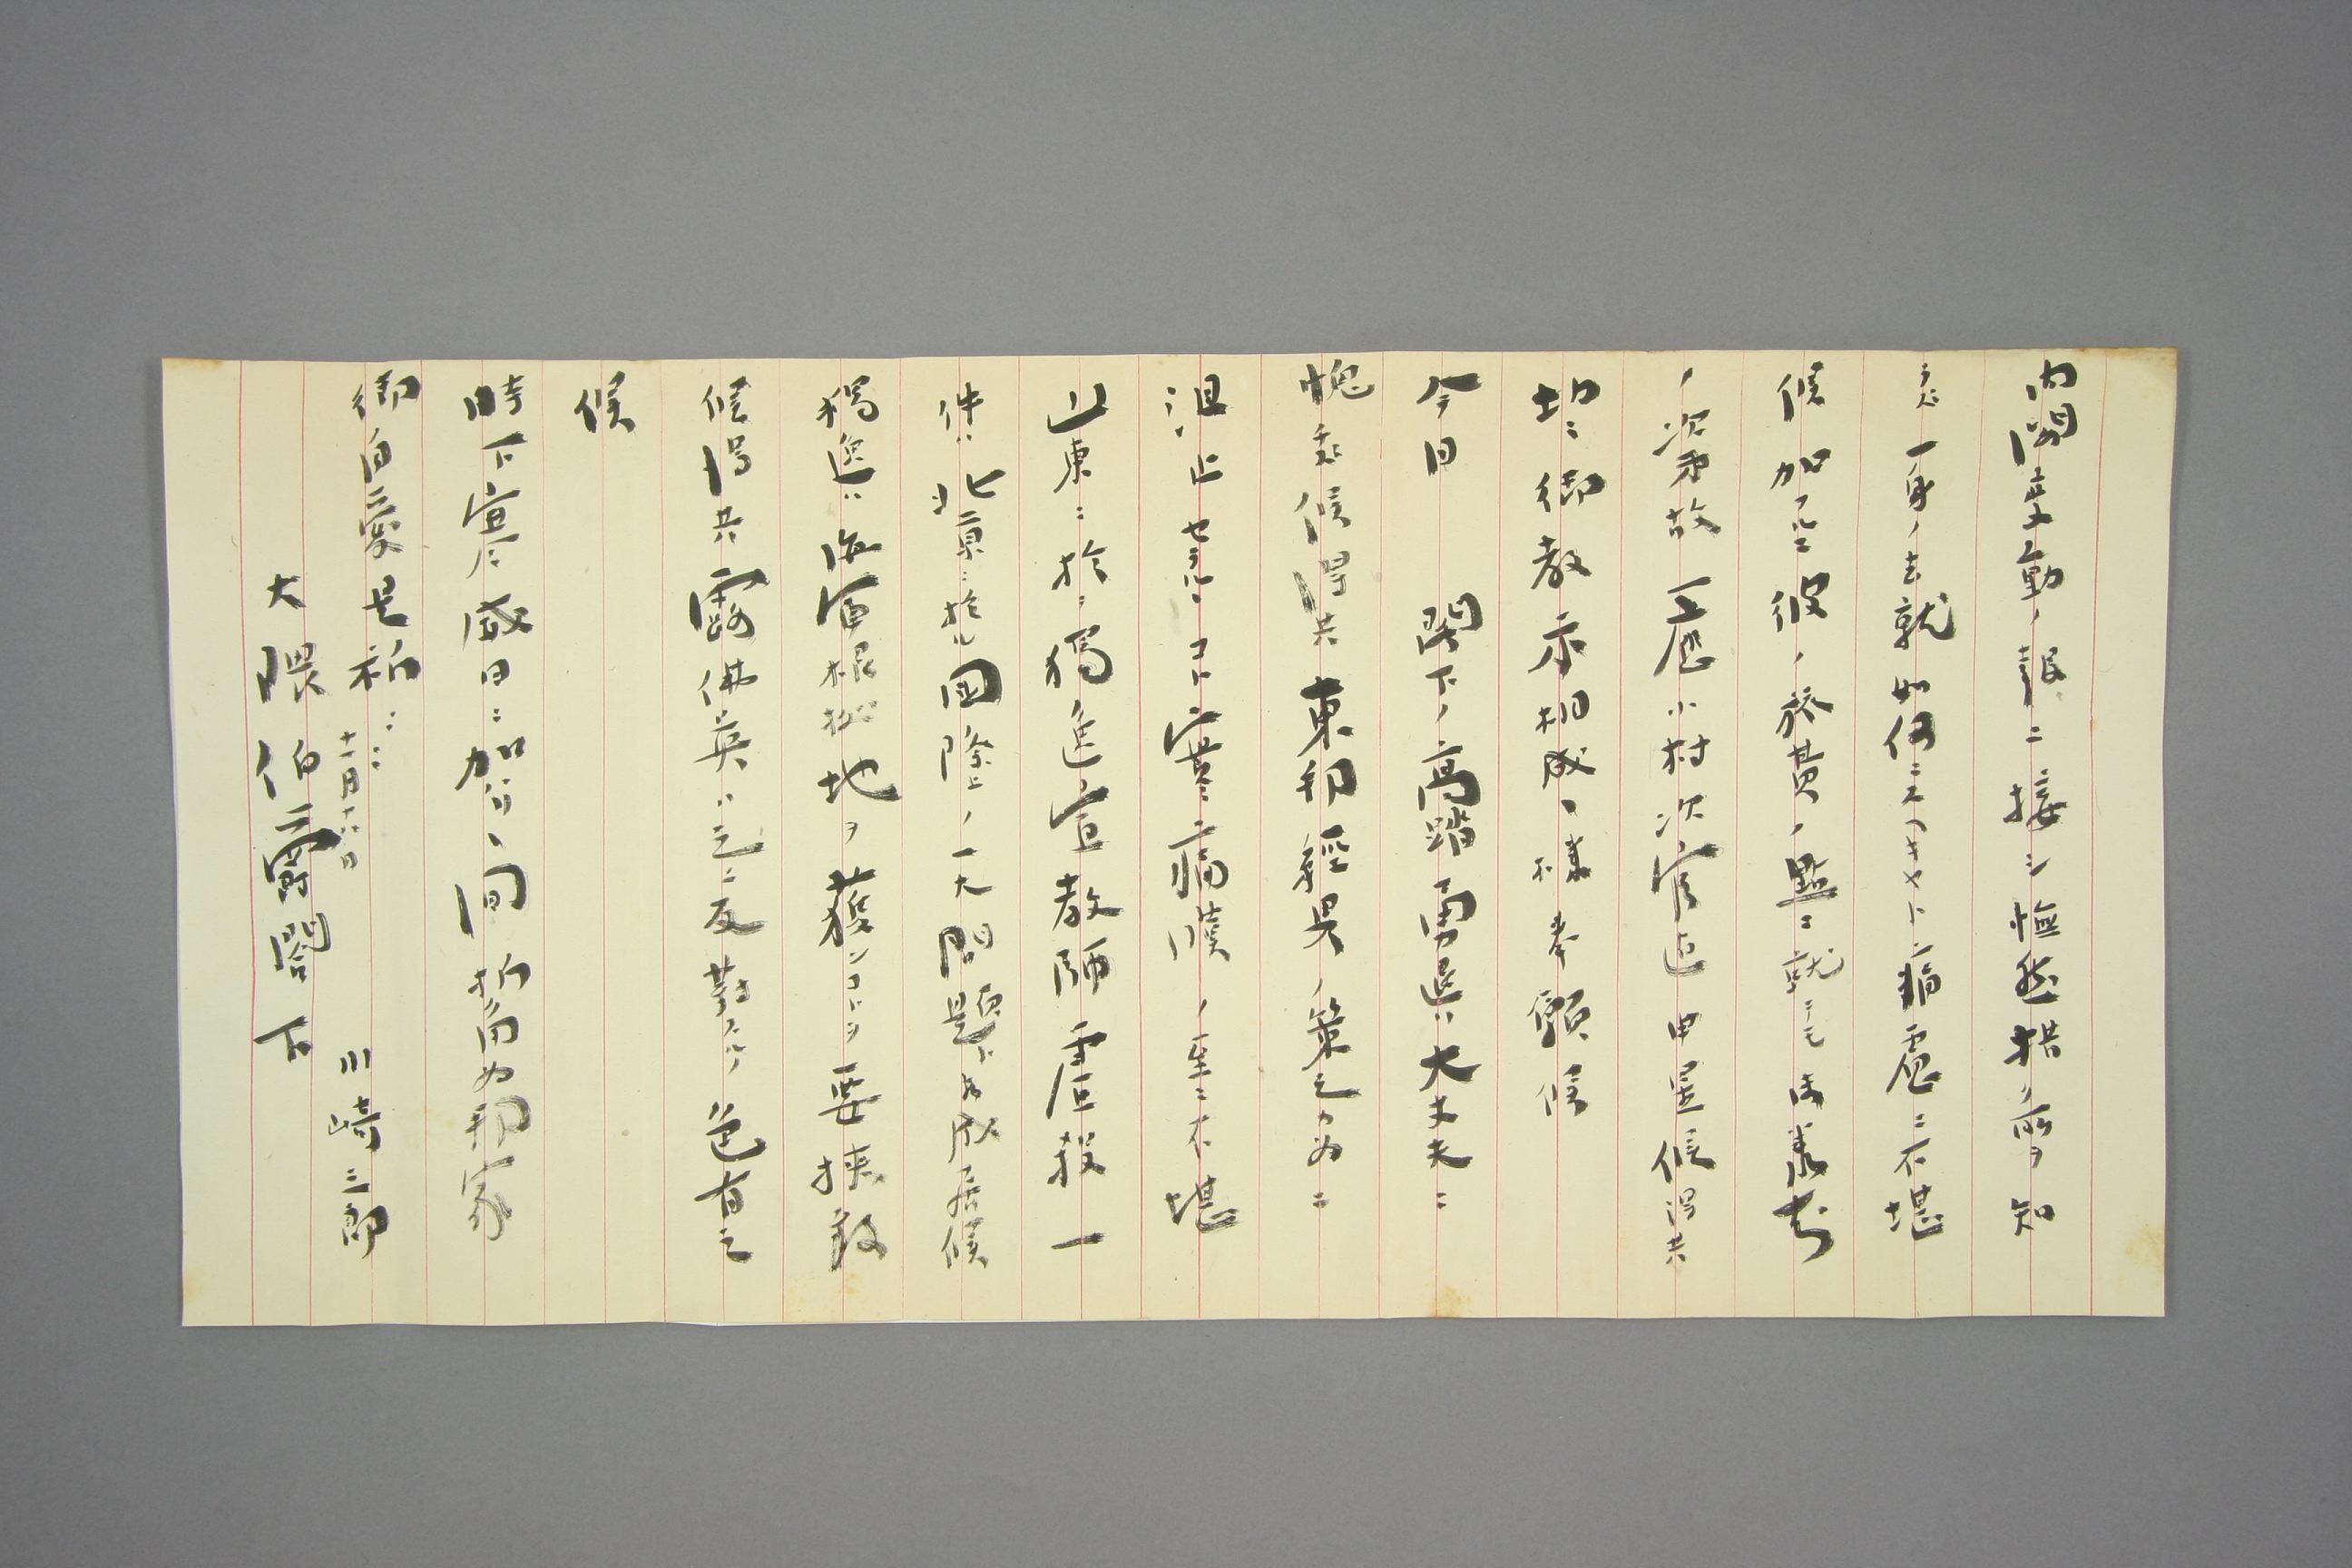 内閣変動ノ報ニ接シ憮然措ク所ヲ知
ラズ一身ノ去就如何ニスヘキヤト痛慮ニ不堪
候加至彼ノ旅費ノ點ニ就テモ
ノ次第故一応小村次官迄申置候得共
切ニ御教示相成候様奉願候
今日閣下ノ高踏勇退ハ大丈夫ニ
愧ズ候得共東邦経畧ノ策之カ為ニ
沮止セラルヽコト実ニ痛嘆ノ至ニ不堪
山東ニ於ケル独逸宣教師虐殺一
件ハ北京ニ於ル国際上ノ一大問題ト相成居候
独逸ハ海軍根拠地ヲ獲ンコトヲ要挾致
候得共露佛英ハ之ニ反対スルノ色有之
候
時下寒威日ニ加ハリ候間折角為邦家
御自愛是祈ニニ
十一月十六日
川崎三郎
大隈伯爵閣下